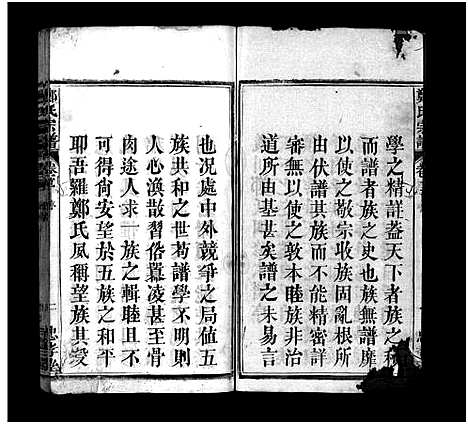 學之精詳蓋天下者族之積
而譜者族之史也族無譜靡
以使之敬宗收族固亂根之
由伏譜其族而不能精密詳
審無以使之敦本睦族非治
道所由基甚矣譜之未易言
也況處中外競爭之局值五
族共和之世苟譜學不明則
人心渙散習俗囂凌甚至骨
肉途人求一族之輯睦且不
可得尚安望於五族之和平
耶吾羅鄭氏夙稱望族其爰
鄭氏宗譜
鄭氏宗譜